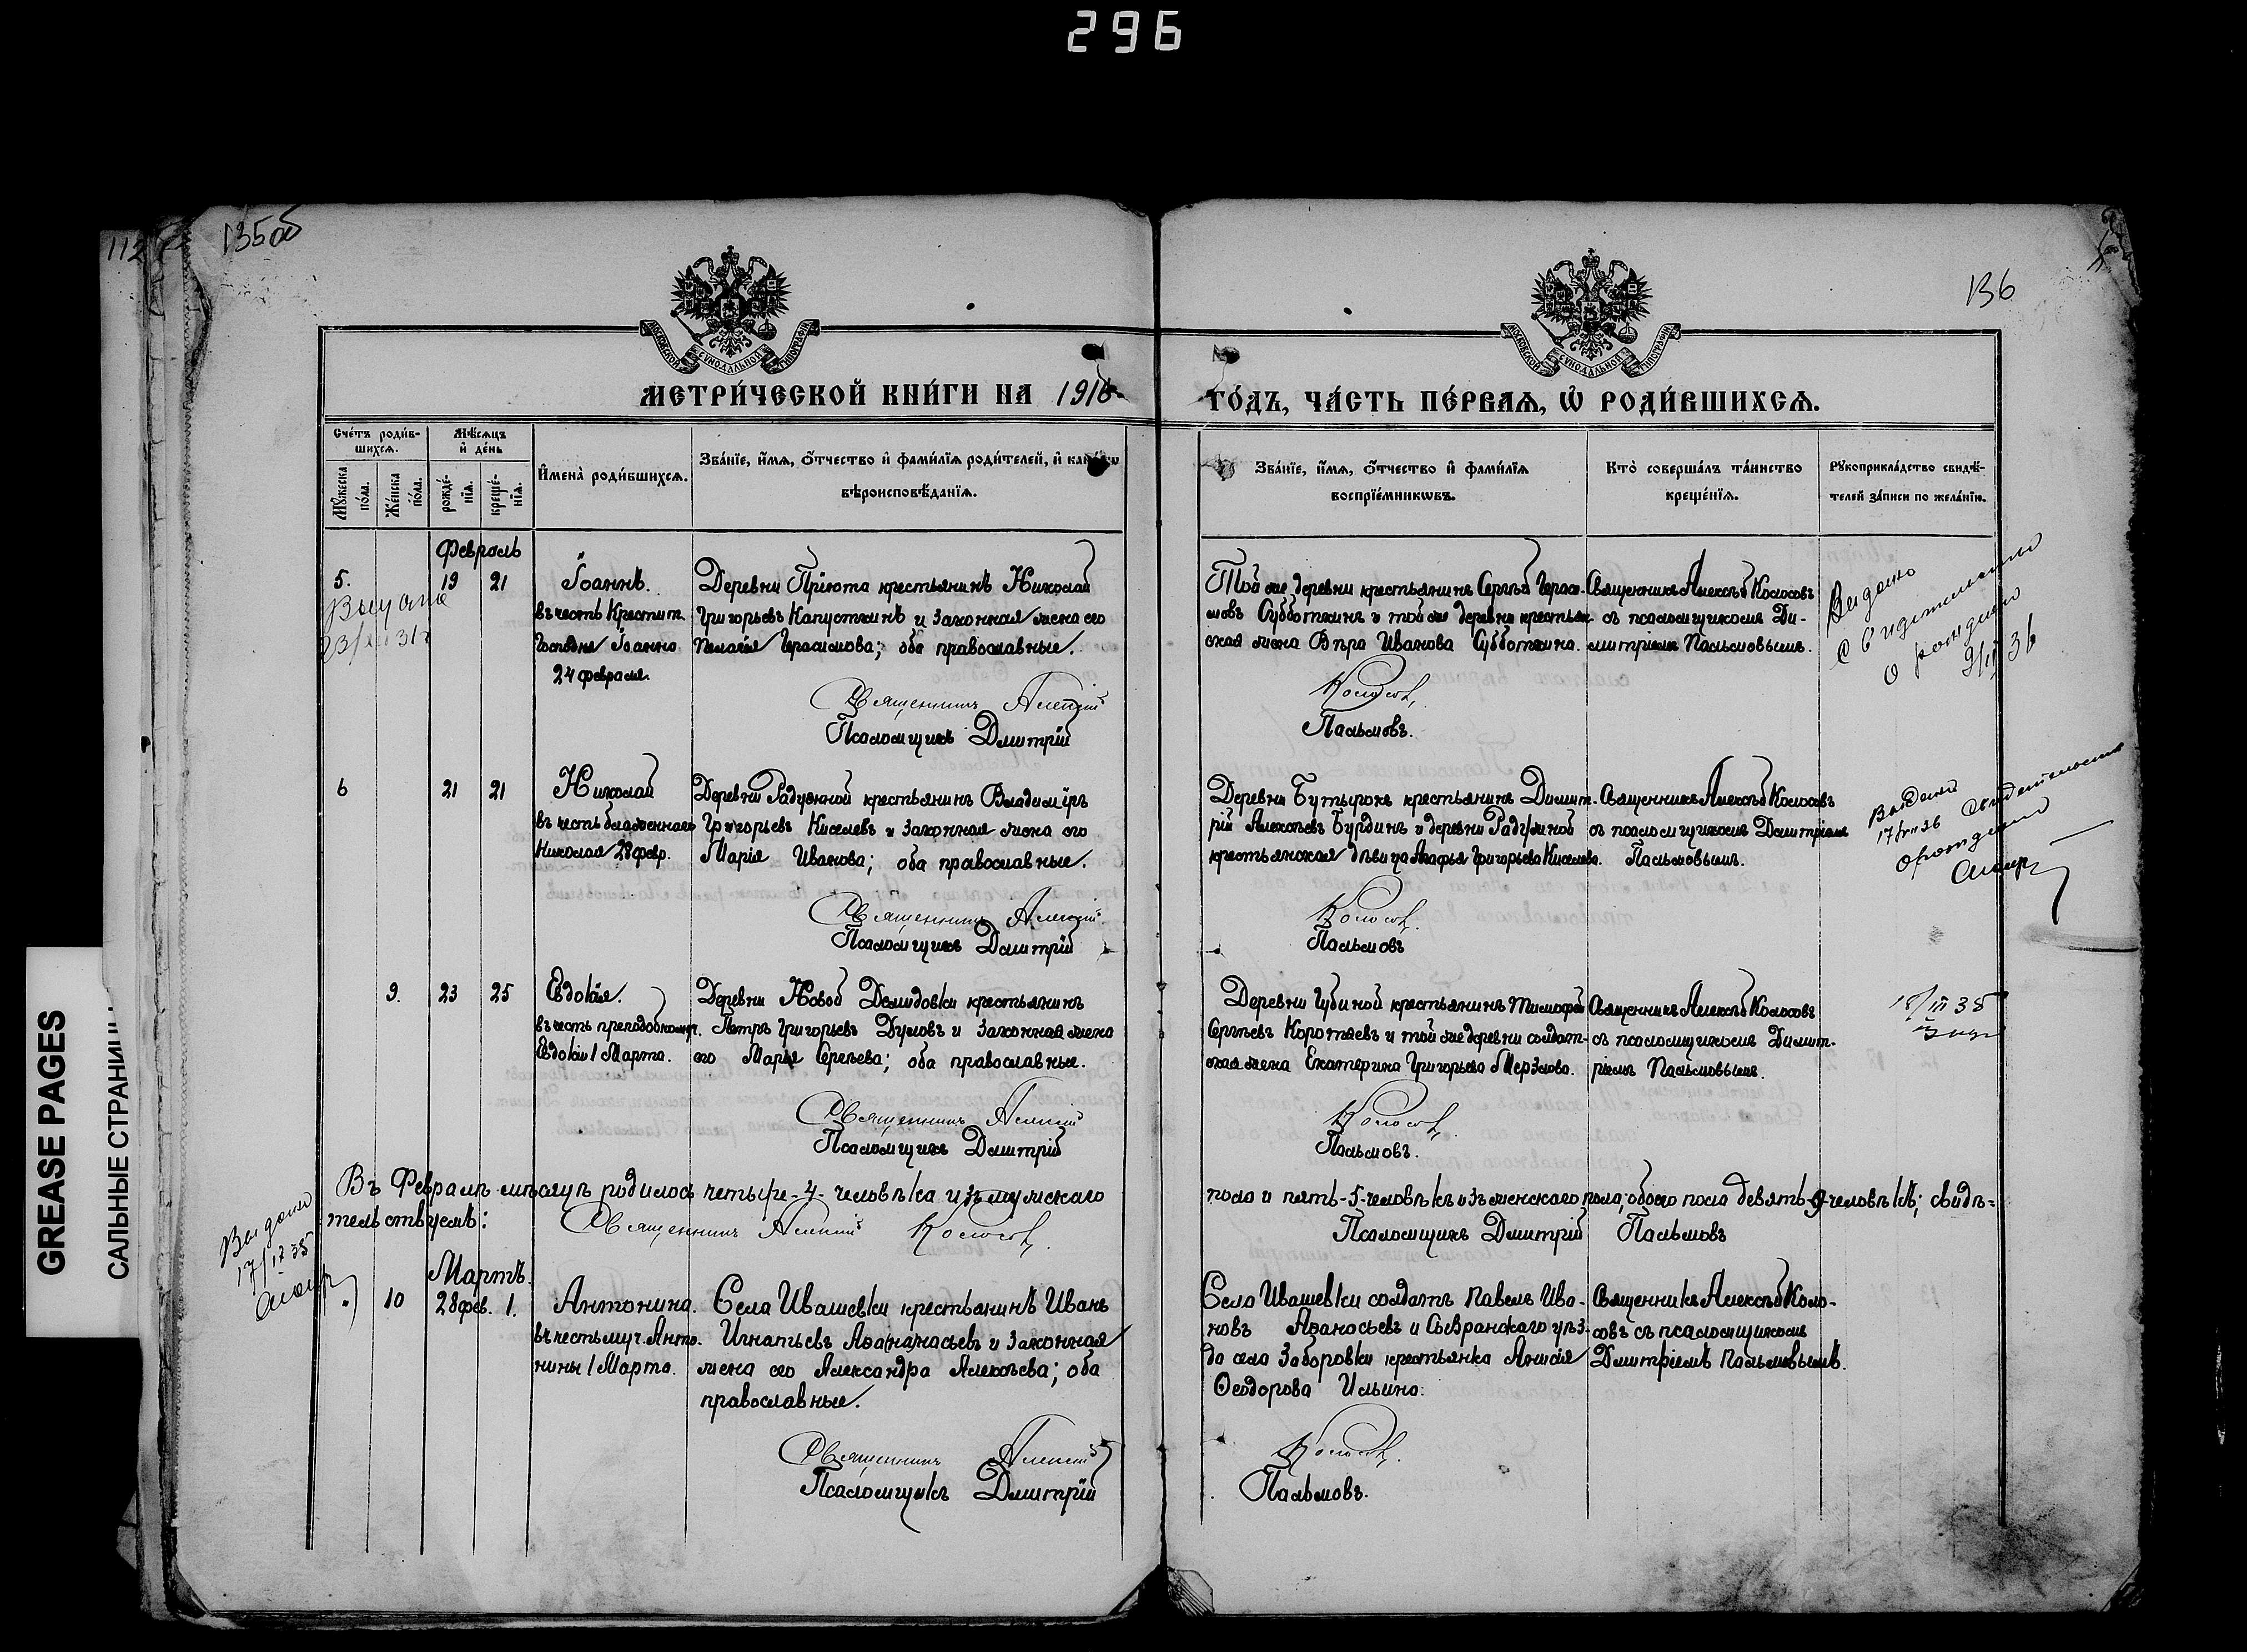 296
112
135об
136
МОСКОВСКОЙ СѴНОДАЛЬНОЙ ТИПОГРАФІИ
МОСКОВСКОЙ СѴНОДАЛЬНОЙ ТИПОГРАФІИ
МЕТРИ́ЧЕСКОЙ КНИ́ГИ НА 1916
ГО́ДЪ, ЧА́СТЬ ПЕ́РВАЯ, Ѡ РОДИ́ВШИХСЯ.
Сче́тъ роди́в-
шихся.
Мѣ́сяцъ
и де́нь
Мꙋжеска
по́ла.
Же́нска
по́ла.
рожде́-
нїя.
креще́-
нїя.
Имена̀ роди́вшихся.
Зва́нїе, и́мя, о́тчество и фами́лїя роди́телей, и
вѣроисповѣ́данїя.
Зва́нїе, и́мя, о́тчество и фами́лїя
воспрїе́мниковъ.
Кто̀ соверша́лъ та́инство
креще́нїя.
Рꙋкоприкла́дство свидѣ́-
телей за́писи по жела́нїю.
Февраль
5. 19 21
Іоаннъ.
въ честь Крестит.
Господня Іоанна
24 февраля.
Деревни Пріюта крестьянинъ Николай
Григорьевъ Капусткинъ и законная жена его
Пелагія Герасимова; оба православные.
Священникъ Алексій
Псаломщикъ Дмитрій
Той же деревни крестьянинъ Сергѣй Гераси-
мовъ Субботкинъ и той же деревни крестьян-
ская жена Вѣра Иванова Субботкина.
Колосовъ,
Пальмовъ.
Священникъ Алексѣй Колосовъ
съ псаломщикомъ Ди-
митріемъ Пальмовымъ.
Выдано
Свидетельство
о рождении
36
6 21 21
Николай
въ честь блаженнаго
Николая 28 февр.
Деревни Радужной крестьянинъ Владиміръ
Григорьевъ Киселевъ и законная жена его
Марія Иванова; оба православные.
Священникъ Алексій
Псаломщикъ Дмитрій
Деревни Бутырокъ крестьянинъ Димит-
рій Алексѣевъ Бурдинъ и деревни Радужной
крестьянская дѣвица Агафья Григорьева Киселева.
Колосовъ.
Пальмовъ
Священникъ Алексѣй Колосовъ
съ псаломщикомъ Дмитріемъ
Пальмовымъ.
Выдано
свидетельство
о рождении
9. 23 25
Евдокія.
въ честь преподобномуч.
Евдокіи 1 Марта.
Деревни Новой Демидовки крестьянинъ
Петръ Григорьевъ Думовъ и законная жена
его Марья Сергѣева; оба православные.
Священникъ Алексій
Псаломщикъ Дмитрій
Деревни Губиной крестьянинъ Тимофей
Сергѣевъ Коротаевъ и той же деревни солдат-
ская жена Екатерина Григорьева Мерзлова.
Колосовъ.
Пальмовъ.
Священникъ Алексѣй Колосовъ
съ псаломщикомъ Димит-
ріемъ Пальмовымъ.
Въ Февралѣ мѣсяцѣ родилось четыре -4- человѣка изъ мужскаго
пола и пять -5- человѣкъ изъ женскаго пола; обоего пола девять -9- человѣкъ; свидѣ-
тельствуемъ:
Священникъ Алексій Колосовъ.
Псаломщикъ Дмитрій Пальмовъ
Выдано
Мартъ.
10 28 фев. 1.
Антонина.
въ честь муч. Анто-
нины 1 Марта.
Села Ивашевки крестьянинъ Иванъ
Игнатьевъ Афанасьевъ и законная
жена его Александра Алексѣева; оба
православные.
Священникъ Алексій
Псаломщикъ Дмитрій
Села Ивашевки солдатъ Павелъ Ива-
новъ Афанасьевъ и Сызранскаго уѣз-
да села Заборовки крестьянка Анисія
Ѳеодорова Ильина.
Колосовъ.
Пальмовъ.
Священникъ Алексѣй Коло-
совъ съ псаломщикомъ
Дмитріемъ Пальмовымъ.
GREASE PAGES
САЛЬНЫЕ СТРАНИЦЫ